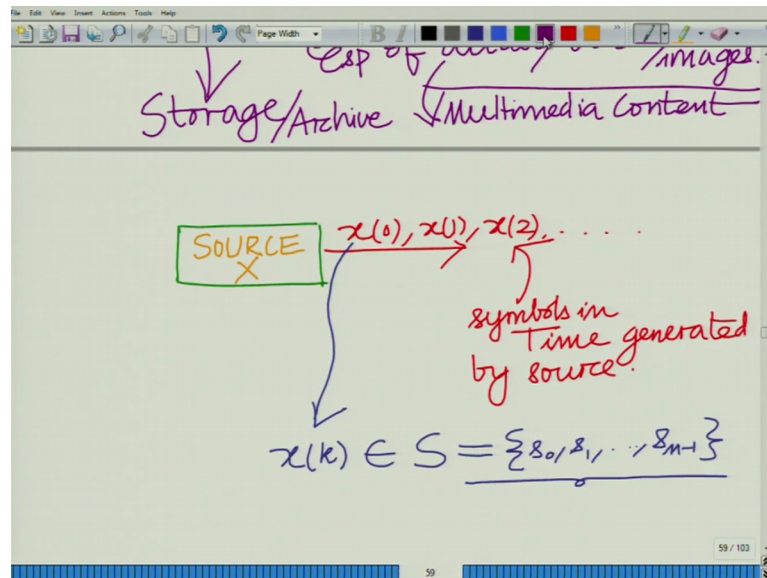 File Edit View Insert Actions Tools Help
Page Width B I
Esp of /images.
Storage/Archive Multimedia Content
SOURCE
X
x(0), x(1), x(2), . . . .
symbols in
Time generated
by source.
x(k) ∈ S = {s0, s1, . . , sM-1}
59 / 103
59